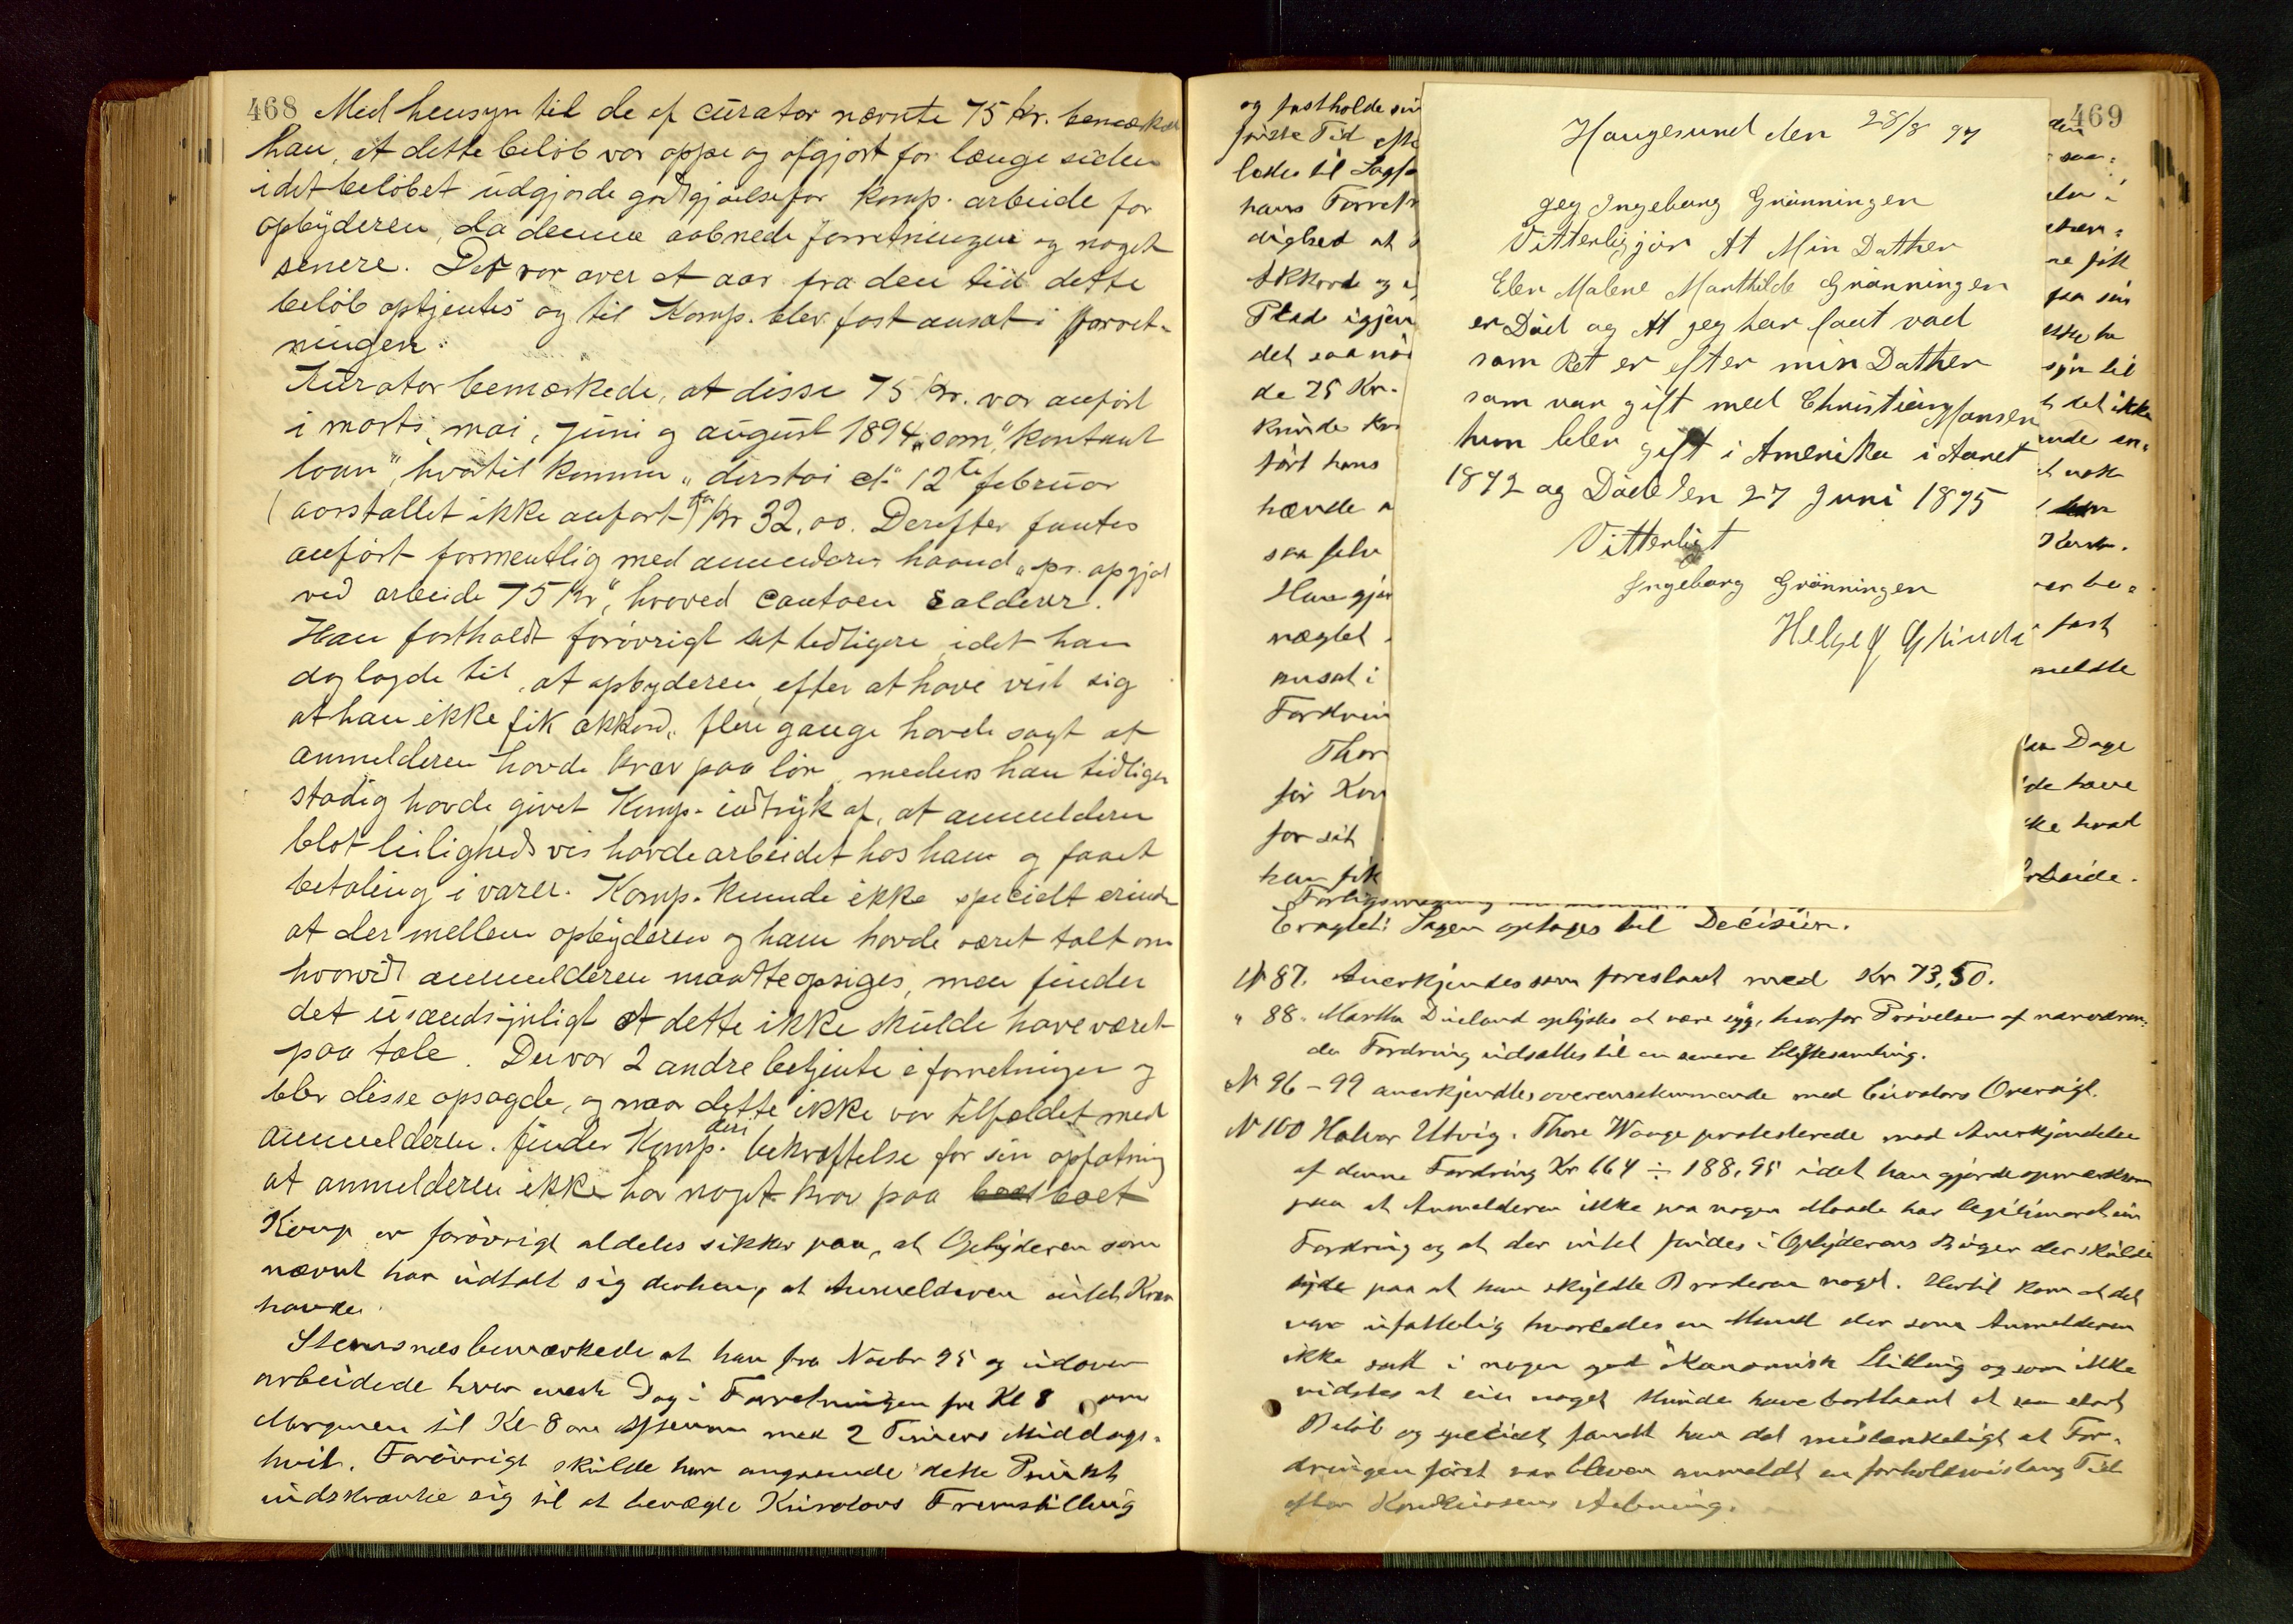 468 Med hensyn til de af curator nævnte 75 Kr. bemærkede
han, at dette beløb var oppe og afgjort for længe siden
idet beløbet udgjorde godtgjørelse for Komp. arbeide for
opbyderen, da denne aabnede forretningen og noget
senere. Det var over et aar fra den tid dette
beløb optjentes og til Komp. blev fast ansat i forret-
ningen.
Kurator bemærkede, at disse 75 Kr. var anført
i marts, mai, juni og august 1894 som "kontant
laan", hvortil kommer 12te februar
(aarstallet ikke anført) for Kr 32,00. Derefter fantes
anført formentlig med anmelderens haand "pr. opgjør
ved arbeide 75 Kr", hvorved contoen salderer.
Han fastholdt forøvrigt sit tidligere, idet han
dog lagde til, at opbyderen, efter at have vist sig
at han ikke fik akkord, flere gange havde sagt at
anmelderen havde krav paa løn, medens han tidligere
stadig havde givet Komp. indtryk af, at anmelderen
blot leilighedsvis havde arbeidet hos ham og faaet
betaling i varer. Komp. kunde ikke specielt erindre
at der mellem opbyderen og ham havde været talt om
hvorvidt anmelderen maatte opsiges, men finder
det usandsynligt at dette ikke skulde have været
paa tale. Der var 2 andre betjente i forretningen og
blev disse opsagde, og naar dette ikke var tilfældet med
anmelderen. finder Komp. deri bekræftelse for sin opfatning
at anmelderen ikke har noget krav paa boet
Komp er forøvrigt aldeles sikker paa, at Opbyderen som
nævnt har udtalt sig derhen, at Anmelderen intet Krav
havde.
Stensnæs bemærkede at han fra Novbr 95 og udover
arbeidede hver enest Dag i Forretningen fra Kl 8 om
Morgenen til Kl 8 om Aftenen med 2 Timers Middags-
hvil. Forøvrigt skulde han angaaende dette Punkt
indskrænke sig til at benægte Kurators Fremstilling
469
og fastholde sin
første Tid efte
lodes til Sagfø
hans Forretn
dighed at
Akkord og
Plads igjen
det saa nø
de 25 Kr.
kunde
ført hans
hænde
saa selv
Han gjør
nægtet
ansat i
Fordrin
Thor
før Kon
for sit
han fik
Haugesund den 28/8 97
Jeg Ingeborg Grönningen
Vitterligjör At Min Dather
Elen Malene Marthilde Grönningen
er Död og At jeg har faat vad
som Ret er efter min Dather
som var gift med Christian Hansen
hun blev gift i Amerika i Aaret
1892 og Döde den 27 Juni 1895
Vitterligt
Ingeborg Grönningen
Helge
den
saa
fik
paa sin
syn til
det ikke
nok
fast
meldte
Dage
de have
ke hvad
rbeide.
Eragtet: Sagen optages til Decision.
N 87. Anerkjendes som foreslaaet med Kr 73,50.
" 88. Martha Dueland oplystes at være syg, hvorfor Prøvelsen af nærværen-
de Fordring udsættes til en senere Skiftesamling.
N 96 - 99 anerkjendtes overensstemmende med Curators Oversigt.
N 100 Halvor Utvig. Thore Waage protesterede mod Anerkjendelse
af denne Fordring Kr 664 ÷ 188,95 idet han gjorde opmærksom
paa at Anmelderen ikke paa nogen Maade har legitimeret sin
Fordring og at der intet findes i Opbyderens Bøger der skulde
tyde paa at han skyldte Broderen noget. Hertil kom at det
var ufattelig hvorledes en Mand der som Anmelderen
ikke sad i nogen god økonomisk Stilling og som ikke
vidstes at eie noget kunde have bortlaant et saa stort
Beløb og specielt fandt han det mistænkeligt at For-
dringen først var bleven anmeldt en forholdsvis lang Tid
efter Konkursens Aabning.